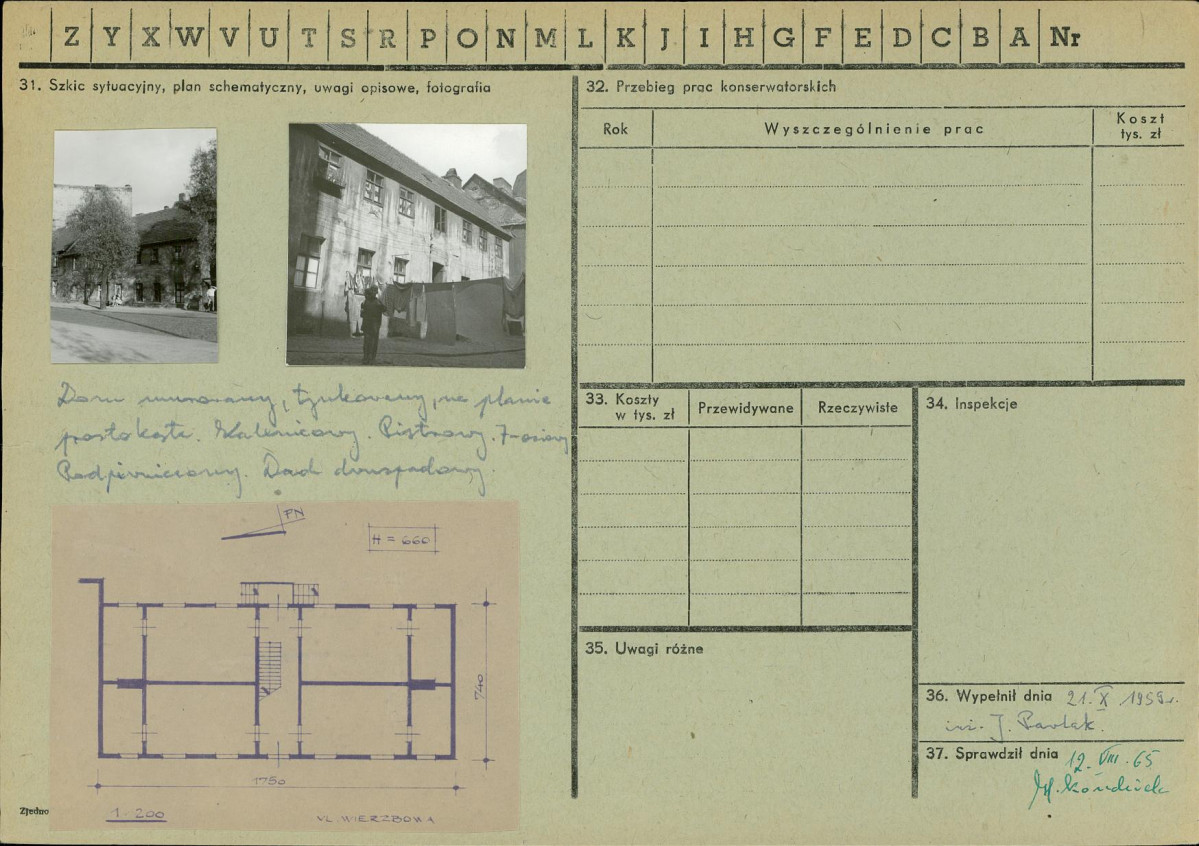 Z Y X W V U T S R P O N M L K J I H G F E D C B A Nr
31. Szkic sytuacyjny, plan schematyczny, uwagi opisowe, fotografia
Dom murowany, tynkowany, na planie
prostokąta. Kalenicowy. Piętrowy. 7-osiowy
Podpiwniczony. Dach dwuspadowy.
PN
H = 660
740
1750
1-200
UL. WIERZBOWA
Zjedno
32. Przebieg prac konserwatorskich
Rok
Wyszczególnienie prac
Koszt
tys. zł
33. Koszty
w tys. zł
Przewidywane
Rzeczywiste
34. Inspekcje
35. Uwagi różne
36. Wypełnił dnia 21. X 1959 r.
inż. J. Pawlak.
37. Sprawdził dnia 12. VIII. 65